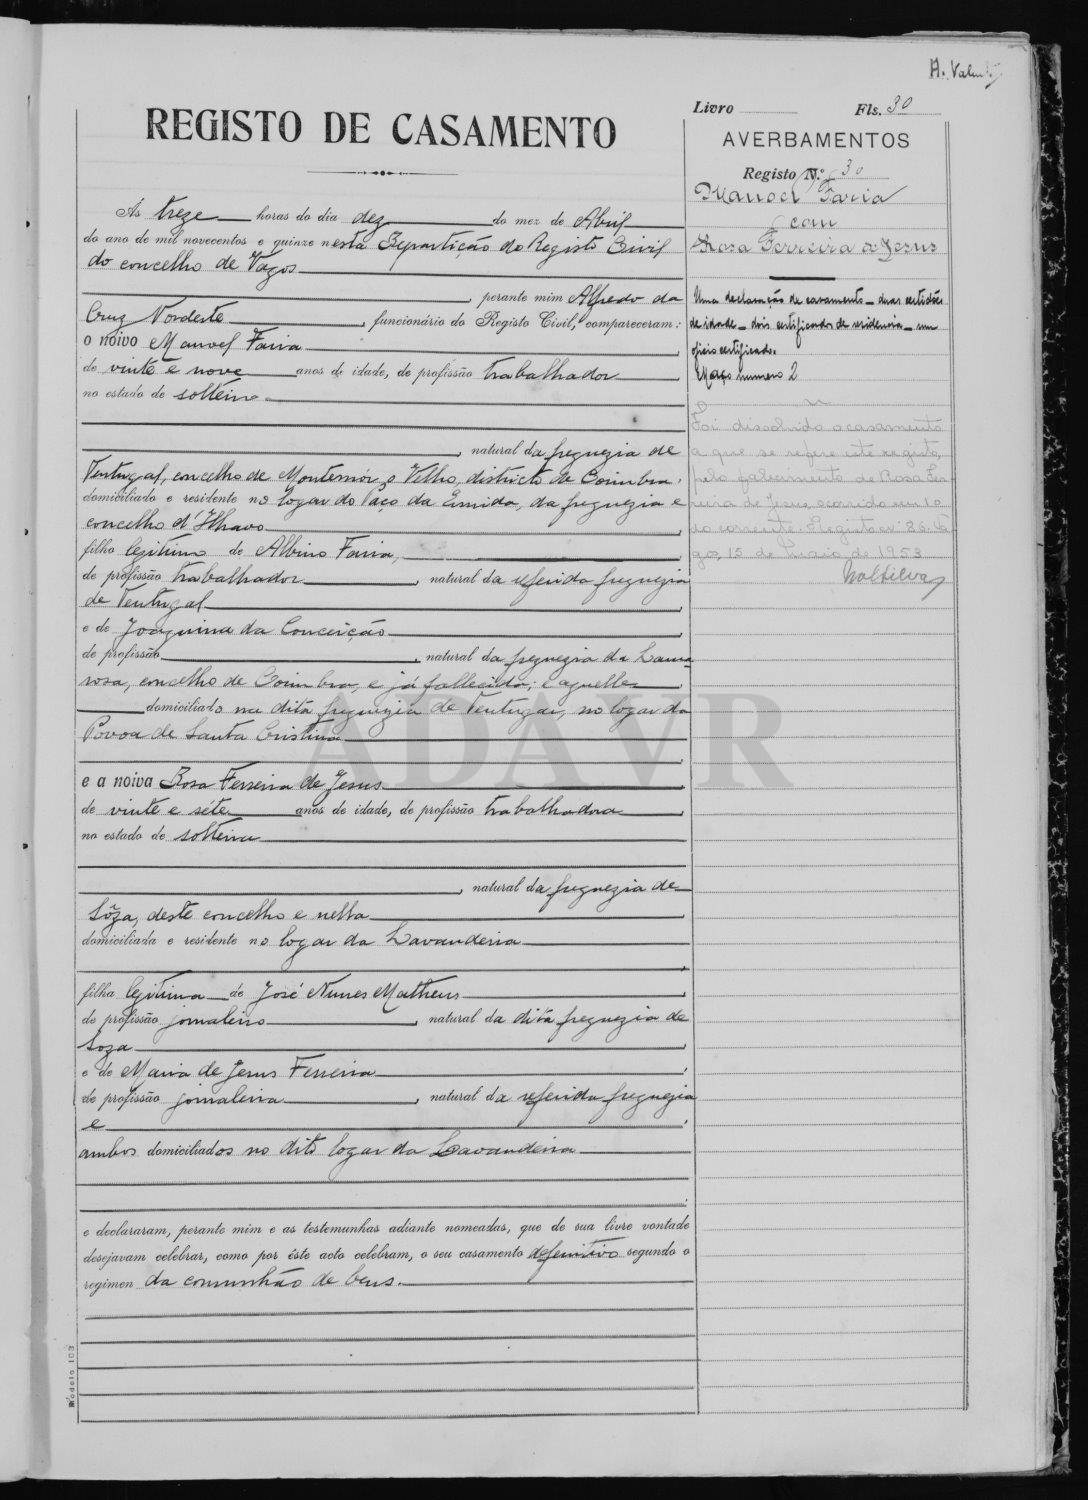 A. Valente
Livro Fls. 30
REGISTO DE CASAMENTO
AVERBAMENTOS
Registo N.º 30
Manoel Faria
com
Rosa Ferreira de Jesus
Uma declaração de casamento — duas certidões
de idade — dois certificados de residencia — um
oficio certificado.
Maço numero 2
Foi dissolvido o casamento
a que se refere este registo,
pelo falecimento de Rosa Fer
reira de Jesus, ocorrido em 10
do corrente. Registo nº 86. Va
gos, 15 de Maio de 1953
Às treze horas do dia dez do mez de Abril
do ano de mil novecentos e quinze nesta Repartição do Registo Civil
do concelho de Vagos
, perante mim Alfredo da
Cruz Nordeste, funcionário do Registo Civil, compareceram:
o noivo Manoel Faria
de vinte e nove anos de idade, de profissão trabalhador
no estado de solteiro
, natural da freguezia de
Tentugal, concelho de Montemór o Velho, districto de Coimbra,
domiciliado e residente no logar do Paço da Ermida, da freguezia e
concelho d'Ilhavo
filho legitimo de Albino Faria,
de profissão trabalhador, natural da referida freguezia
de Tentugal
e de Joaquina da Conceição
de profissão, natural da freguezia da Lama
rosa, concelho de Coimbra, e já fallecida; e aquelle
domiciliado na dita freguezia de Tentugal, no logar da
Povoa de Santa Cristina
e a noiva Rosa Ferreira de Jesus
de vinte e sete anos de idade, de profissão trabalhadora
no estado de solteira
, natural da freguezia de
Sôza, deste concelho e nella
domiciliada e residente no logar da Lavandeira
filha legitima de José Nunes Matheus
de profissão jornaleiro, natural da dita freguezia de
Soza
e de Maria de Jesus Ferreira
de profissão jornaleira, natural da referida freguezia
e
ambos domiciliados no dito logar da Lavandeira
e declararam, perante mim e as testemunhas adiante nomeadas, que de sua livre vontade
desejavam celebrar, como por êste acto celebram, o seu casamento definitivo segundo o
regimen da comunhão de bens.
Modelo 103
ADAVR